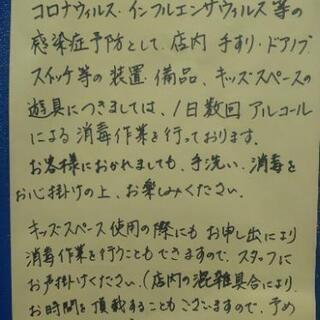 コロナウィルス・インフルエンザウィルス等の
感染症予防として、店内 手すり・ドアノブ
スイッチ等の装置・備品、キッズスペースの
遊具につきましては、1日数回アルコール
による消毒作業を行っております。
お客様におかれましても、手洗い、消毒を
お心掛けの上、お楽しみください。
キッズスペース使用の際にもお申し出により
消毒作業を行うこともできますので、スタッフに
お声掛けください。(店内の混雑具合により
お時間を頂戴することもございますので、予め